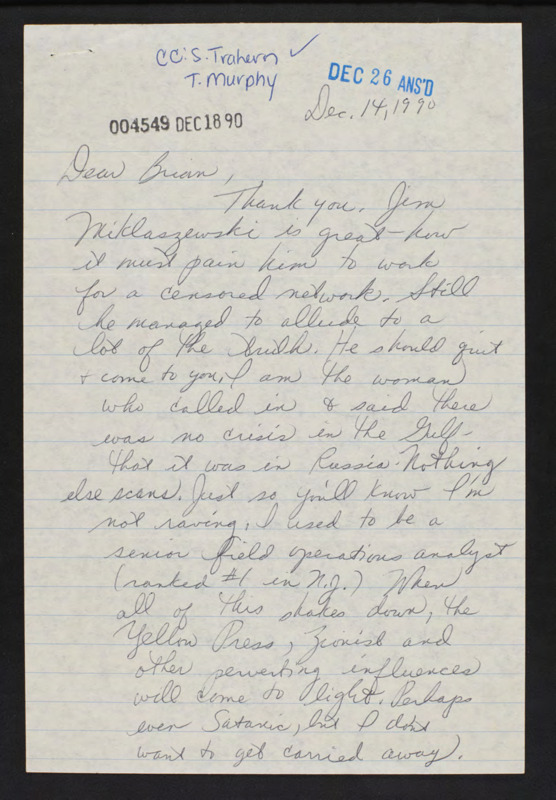 CC: S. Trahern ✓
T. Murphy
DEC 26 ANS'D
Dec. 14, 1990
004549 DEC 18 90
Dear Brian,
Thank you. Jim
Miklaszewski is great - how
it must pain him to work
for a censored network. Still
he managed to allude to a
lot of the truth. He should quit
+ come to you. I am the woman
who called in & said there
was no crisis in the Gulf -
that it was in Russia. Nothing
else scans. Just so you'll know I'm
not raving, I used to be a
senior field operations analyst
(ranked #1 in N.J.) When
all of this shakes down, the
Yellow Press, Zionist and
other perverting influences
will come to light. Perhaps
even Satanic, but I don't
want to get carried away.